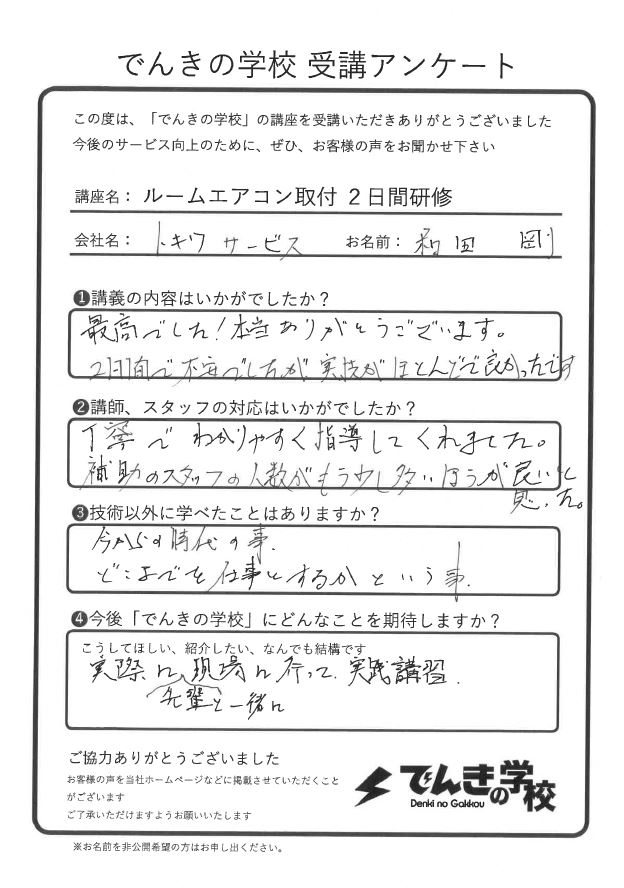 でんきの学校 受講アンケート
この度は、「でんきの学校」の講座を受講いただきありがとうございました
今後のサービス向上のために、ぜひ、お客様の声をお聞かせ下さい
講座名： ルームエアコン取付 2日間研修
会社名： トキワサービス お名前： 和田 剛
❶講義の内容はいかがでしたか？
最高でした！本当ありがとうございます。
2日間で不安でしたが実技がほとんどで良かったです
❷講師、スタッフの対応はいかがでしたか？
丁寧でわかりやすく指導してくれました。
補助のスタッフの人数がもう少し多いほうが良いと
思った。
❸技術以外に学べたことはありますか？
今からの時代の事.
どこまでを仕事とするかという事.
❹今後「でんきの学校」にどんなことを期待しますか？
こうしてほしい、紹介したい、なんでも結構です
実際に現場に行って実践講習.
先輩と一緒に
ご協力ありがとうございました
お客様の声を当社ホームページなどに掲載させていただくこと
がございます
ご了承いただけますようお願いいたします
でんきの学校
Denki no Gakkou
※お名前を非公開希望の方はお申し出ください。